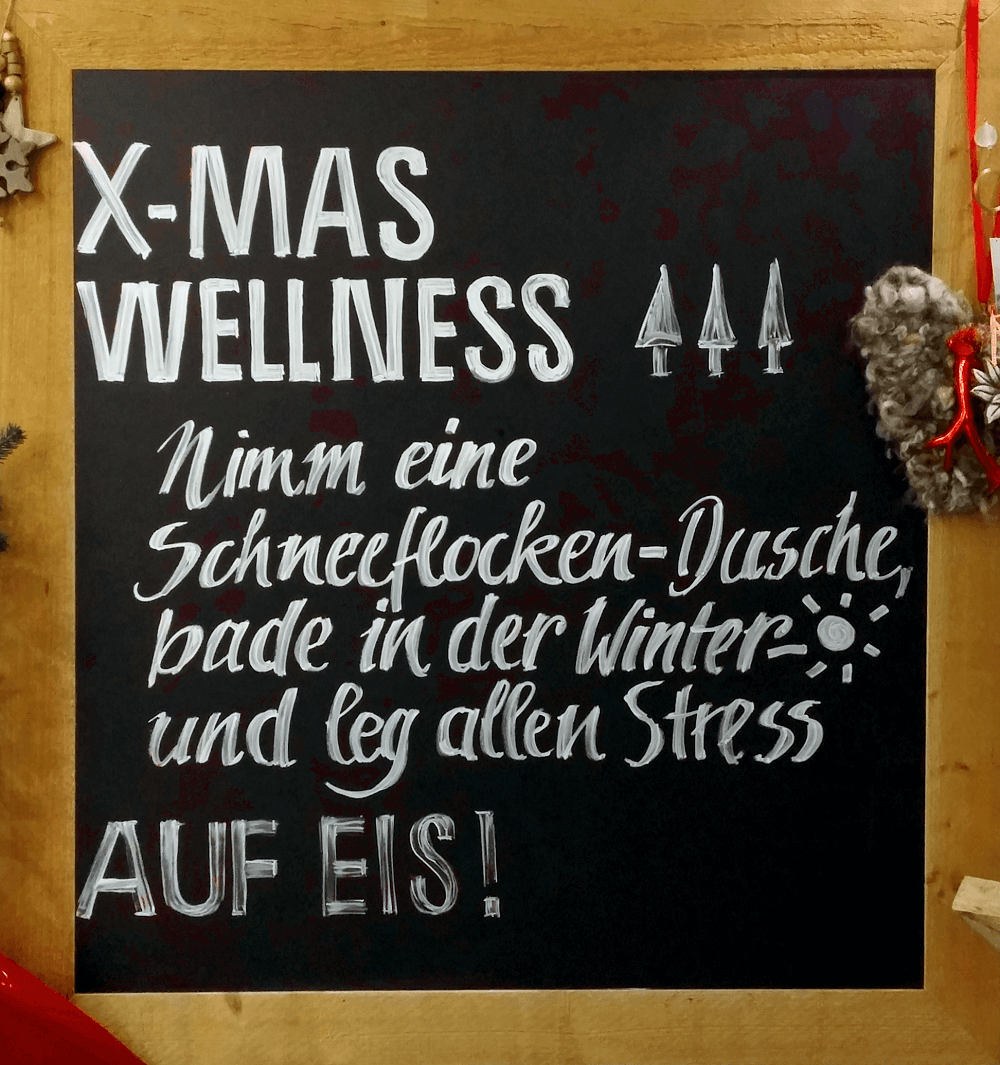 X-MAS
WELLNESS
Nimm eine
Schneeflocken-Dusche,
bade in der Winter-
und leg allen Stress
AUF EIS!